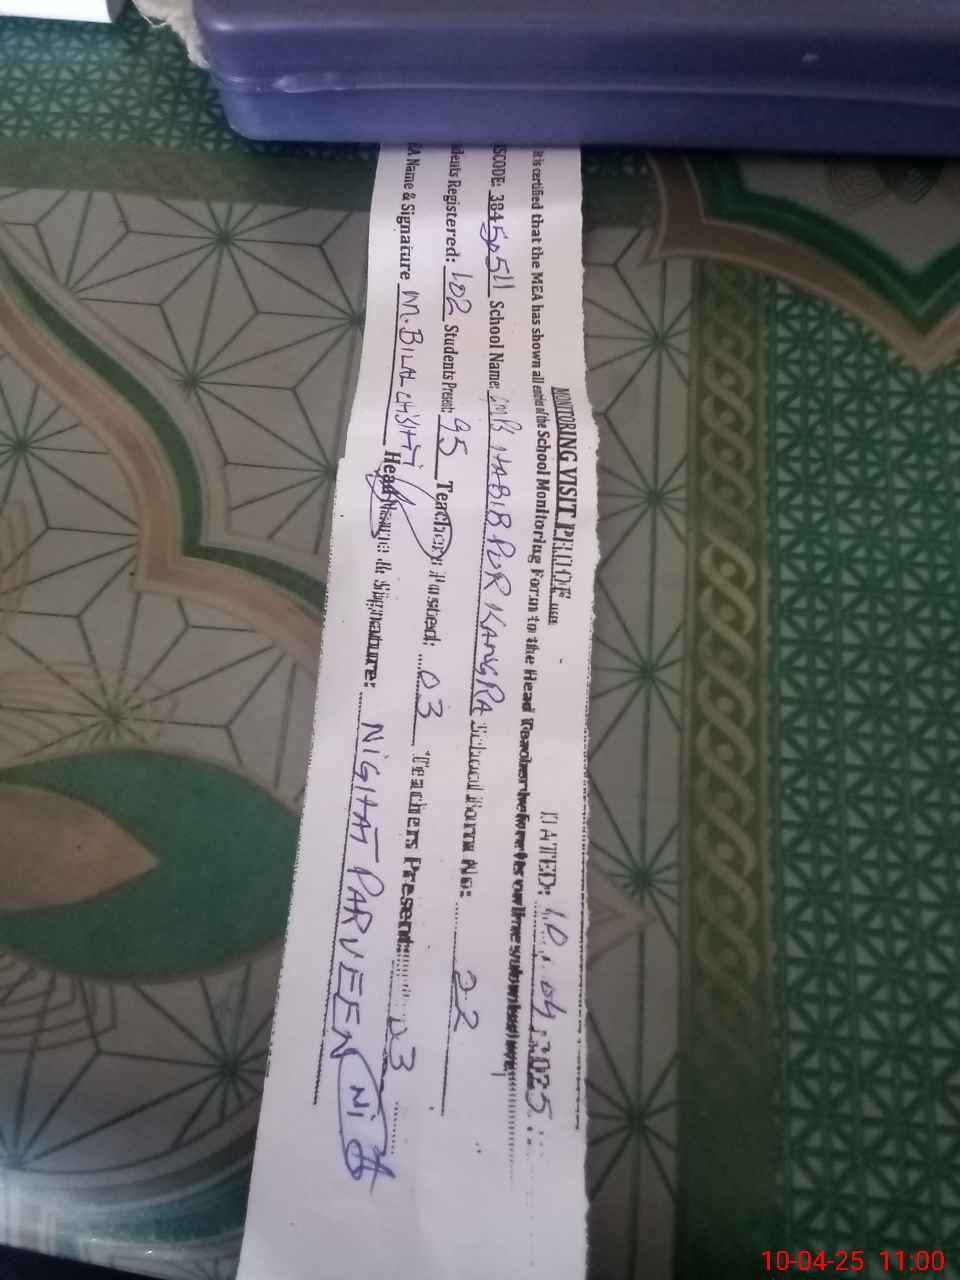 MONITORING VISIT PROOF
DATED: 10.04.2025
It is certified that the MEA has shown all entries of the School Monitoring Form to the Head Teacher before
SCODE: School Name: HABIB PUR KANGRA School Form No: 22
dents Registered: 102 Students Present: 95 Teachers Posted: 03 Teachers Present: 03
A Name & Signature M. BILAL CHISHTI Head Name & Signature: NIGHAT PARVEEN
10-04-25 11:00